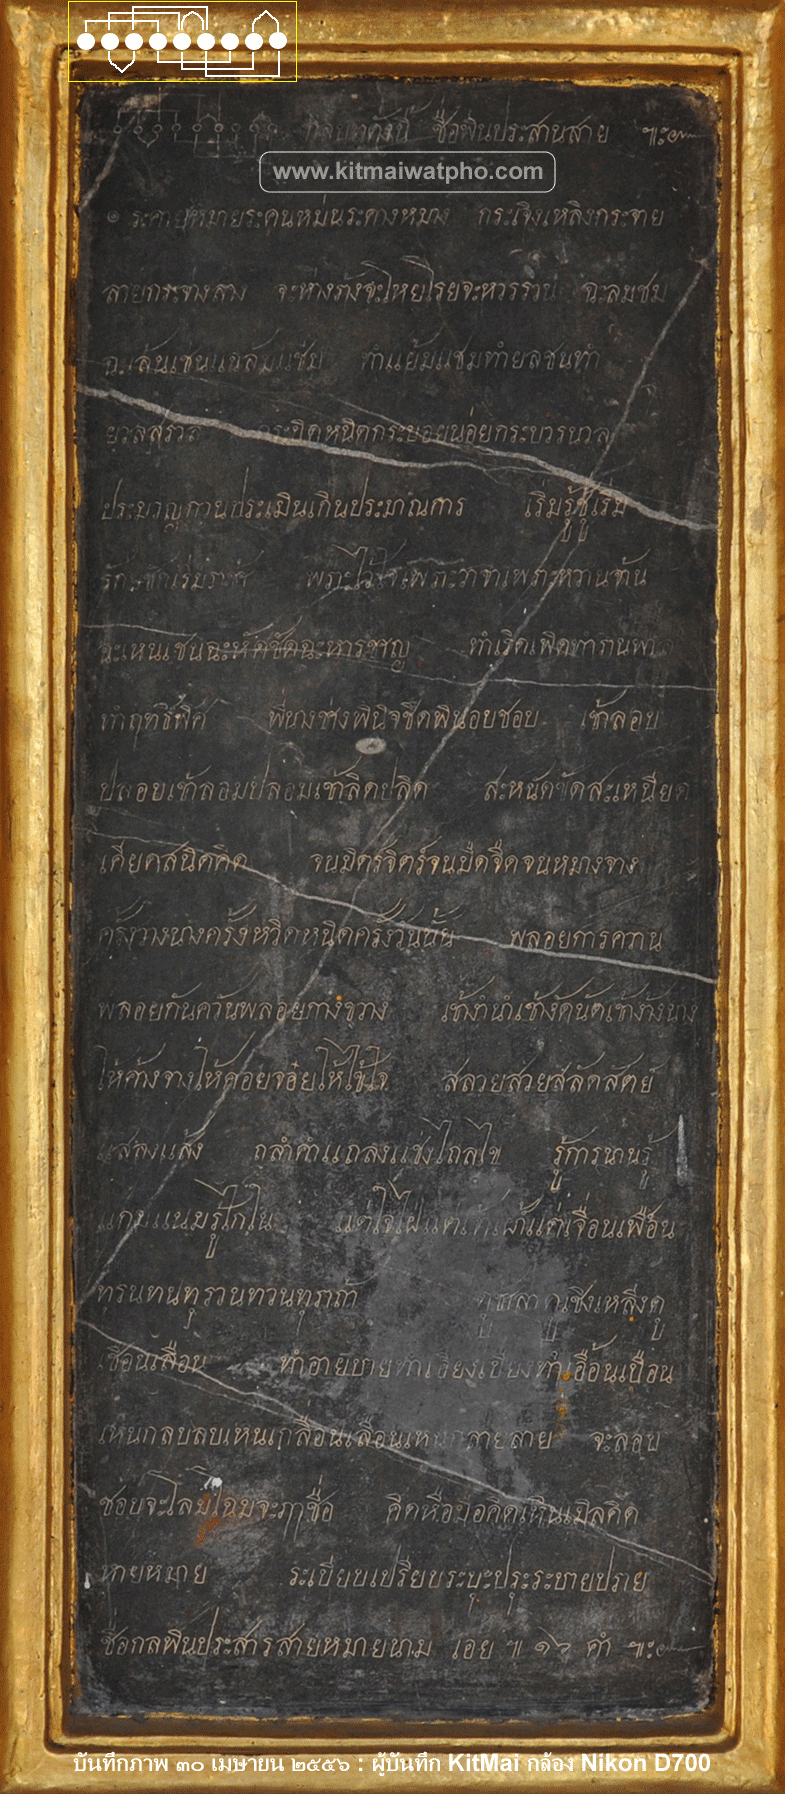 กลบทดั่งนี้ ชื่อพินประสานสาย ๚ะ๛
www.kitmaiwatpho.com
๏ ระคายหมายระคนหม่นระคางหมาง กระเจิงเหลิงกระจาย
สายกระจ่างสาง จะห่างร้างจะโหยโรยจะหวรรวน ฉะลมชม
ฉะเล้นเช่นแฉล้มแช่ม ทำแย้มแชมทำยลชนทำ
ยวลสรวล กระบิดหนิดกระบอยหน่อยกระบวรนวล
ประมวญกวนประเมินเกินประมาณการ เริ่มรู้ชู้เริ่ม
รัก เริ่ม เพราะวาจาเพราะหวานจ้าน
ฉะเหนเชนฉะหัดชัดฉะหารชาญ ทำเริด
ทำฤทธิ์พิศ พี่นางช่างพินิจชิดพินอบชอบ เข้าลอบ
ปลอบเข้าลอมปลอมเข้าลิดปลิด สะหนัดขัดสะเหนียด
เคียดสนิดคิด จนมิตรจิตร์จนมืดจืดจนหมางจาง
ครั้งวางนางครั้งหวิดหนิดครั้งวันนั้น พลอยการควาน
พลอยกันควันพลอยกางขวาง เข้างำนำเข้างัดนัดเข้าง้างนาง
ให้ค้างจางให้คอยจอยให้ไข้ใจ สลวยสวยสลัดสัตย์
แสลงแส้ง ถลำคำแถลงแข่งไถลไข รู้การนานรู้
แกมแนมรู้ไกใน แต่ใจไฝ่แต่ แต่เจื่อนเพื่อน
ทุรนทนทุรวนทวนทุราถ้า คู่ ชิงเหลิ่งคู่
เชือนเสือน ทำอายบายทำเอียงเบี่ยงทำเอื้อนเบือน
เหนกลบลบเหนเกลื่อนเลือนเหนกลายลาย จะลอบ
ชอบจะโลมโฉมจะฦๅชื่อ คิดหือมือคิดเหินเมิลคิด
หายหมาย ระเบียบเปรียบระบุะปรุะระบายปราย
ชื่อกลพินประสารสายหมายนาม เอย ๚ ๑๖ คำ ๚ะ๛
บันทึกภาพ ๓๐ เมษายน ๒๕๕๖ : ผู้บันทึก KitMai กล้อง Nikon D700